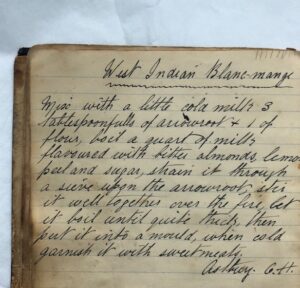 West Indian Blanc-mange
Mix with a little cold milk 3
tablespoonfulls of arrowroot & 1 of
flour, boil a quart of milk
flavoured with bitter almonds, lemon
peel and sugar, strain it through
a sieve upon the arrowroot, stir
it well together over the fire, let
it boil until quite thick, then
put it into a mould, when cold
garnish it with sweetmeats.
Astbury. G. H.